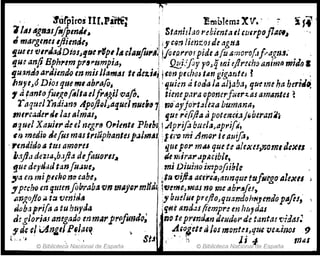 Suspiros III. Parte,
à las aguas suspende,
ò margenes estiende,
que es verdad Dios, que rópe la clausura.
que ansi Ephrem prorumpia,
quando ardiendo en mis llamas te dezia
huye, ò Dios que me abraso,
y à tanto fuego falta el fragil caso.
Y aquel Yndiano Apostol, aquel nuebo
mercader de las almas,
aquel Xauier de el negro Oriente Phebo
en medio de sus mas triūphantes palmas
rendido a tus amores
basta dezia, basta de fauores,
que deydad tan suaue,
ya en mi pecho no cabe,
y pecho en quien sobraba vn mayor mūdo
angosto a tu venida
daba prisa a tu huyda
de glorias anegado en mar profundo;
y de el Angel Pelaeq
Sta
Emblema XV.
Stanislao rebienta el cuerpo flaco,
y con lienzos de agua
socorros pide a su amorosa fragua.
Qui: soy yo, q̄ mi estrecho animo mido
con pechos tan gigantes?
quien à toda la aljaba, que me ha herido
tiene para oponer fuerzas amantes?
no ay fortaleza humana,
que resista à potencia soberana
Aprisa buela, aprisa,
què de mi Amor te auisa,
que por mas que te alexes, no me dexes
de mirar apacible,
mi Diuino impossible
tu vista acerca, aunque tu fuego alexes
veme, mas no me abrases,
y buelue presto, quando huyendo pases,
que andas siempre en huydas
no te prendan deudor de tantas vidas.
Acogete à los montes, que vezinos
Ii 4
mas
© Biblioteca Nacional de España
© Biblioteca Nacional de España